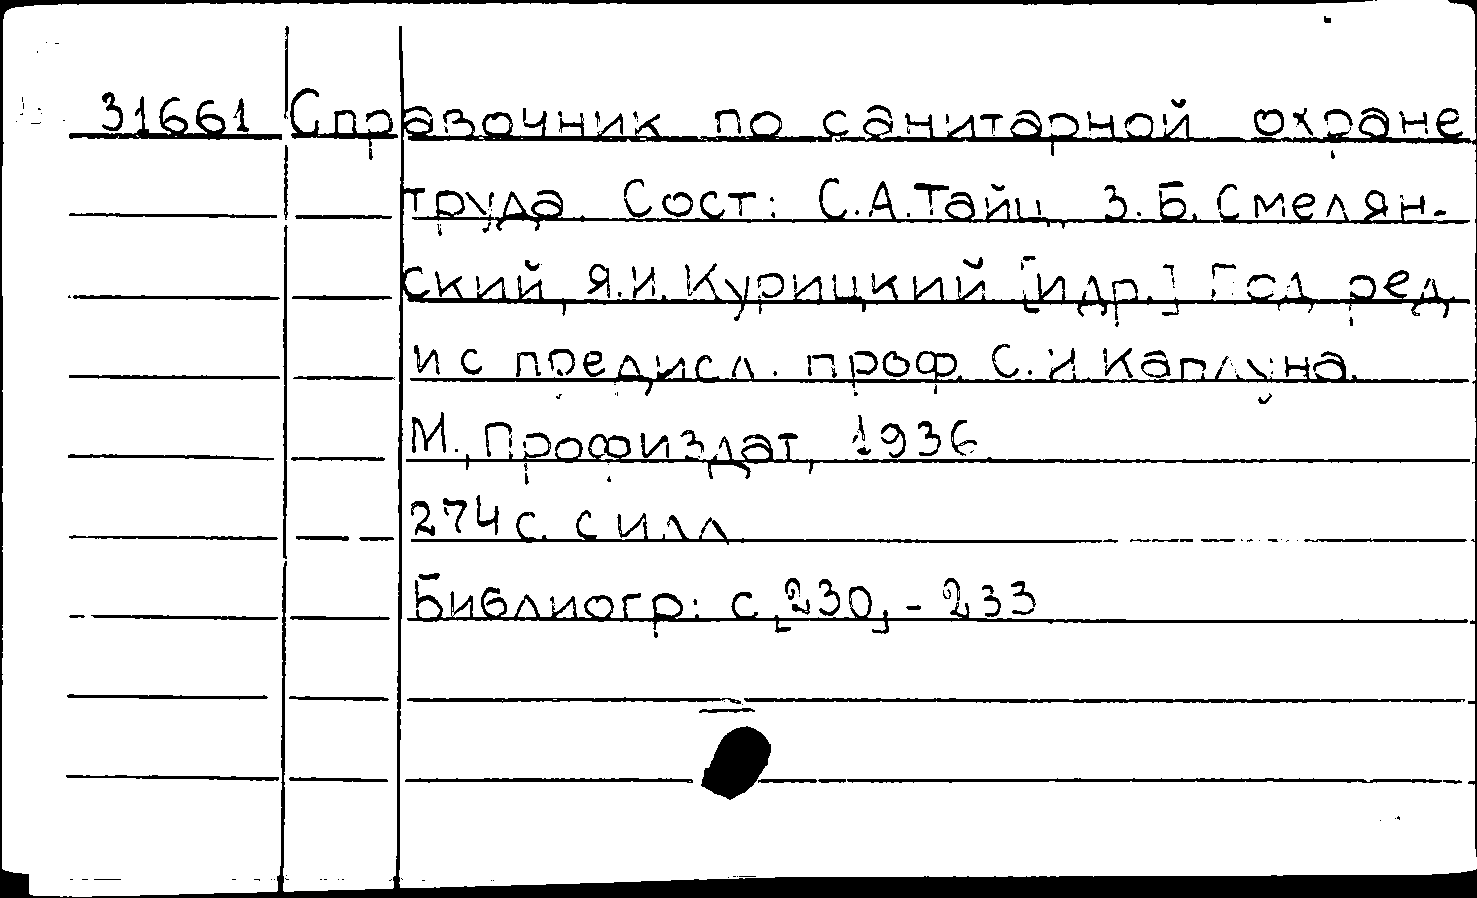 31661 Справочник по санитарной охране
труда. Сост: С.А.Тайц, З.Б.Смелян-
ский, Я.И.Курицкий [и др.] Под ред.
и с предисл. проф. С.И Каплуна.
М., Профиздат, 1936.
274 с. с илл.
Библиогр: с [230] - 233